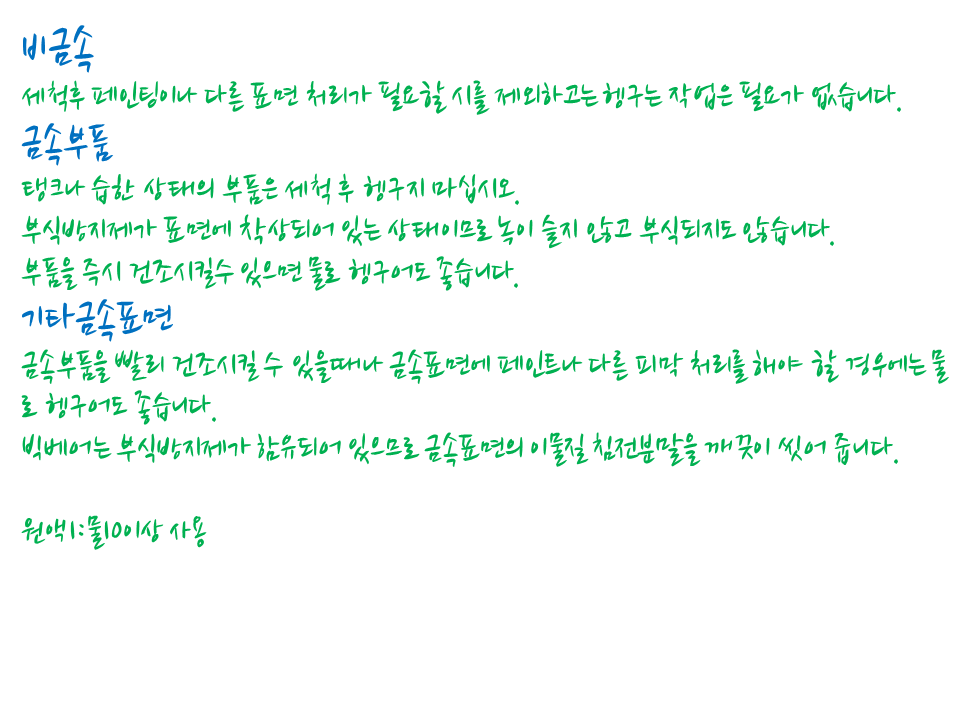 비금속
세척후 페인팅이나 다른 표면 처리가 필요할 시를 제외하고는 헹구는 작업은 필요가 없습니다.
금속부품
탱크나 습한 상태의 부품은 세척 후 헹구지 마십시오.
부식방지제가 표면에 착상되어 있는 상태이므로 녹이 슬지 않고 부식되지도 않습니다.
부품을 즉시 건조시킬수 있으면 물로 헹구어도 좋습니다.
기타금속표면
금속부품을 빨리 건조시킬 수 있을때나 금속표면에 페인트나 다른 피막 처리를 해야 할 경우에는 물
로 헹구어도 좋습니다.
빅베어는 부식방지제가 함유되어 있으므로 금속표면의 이물질 침전분말을 깨끗이 씻어 줍니다.
원액1:물10이상 사용